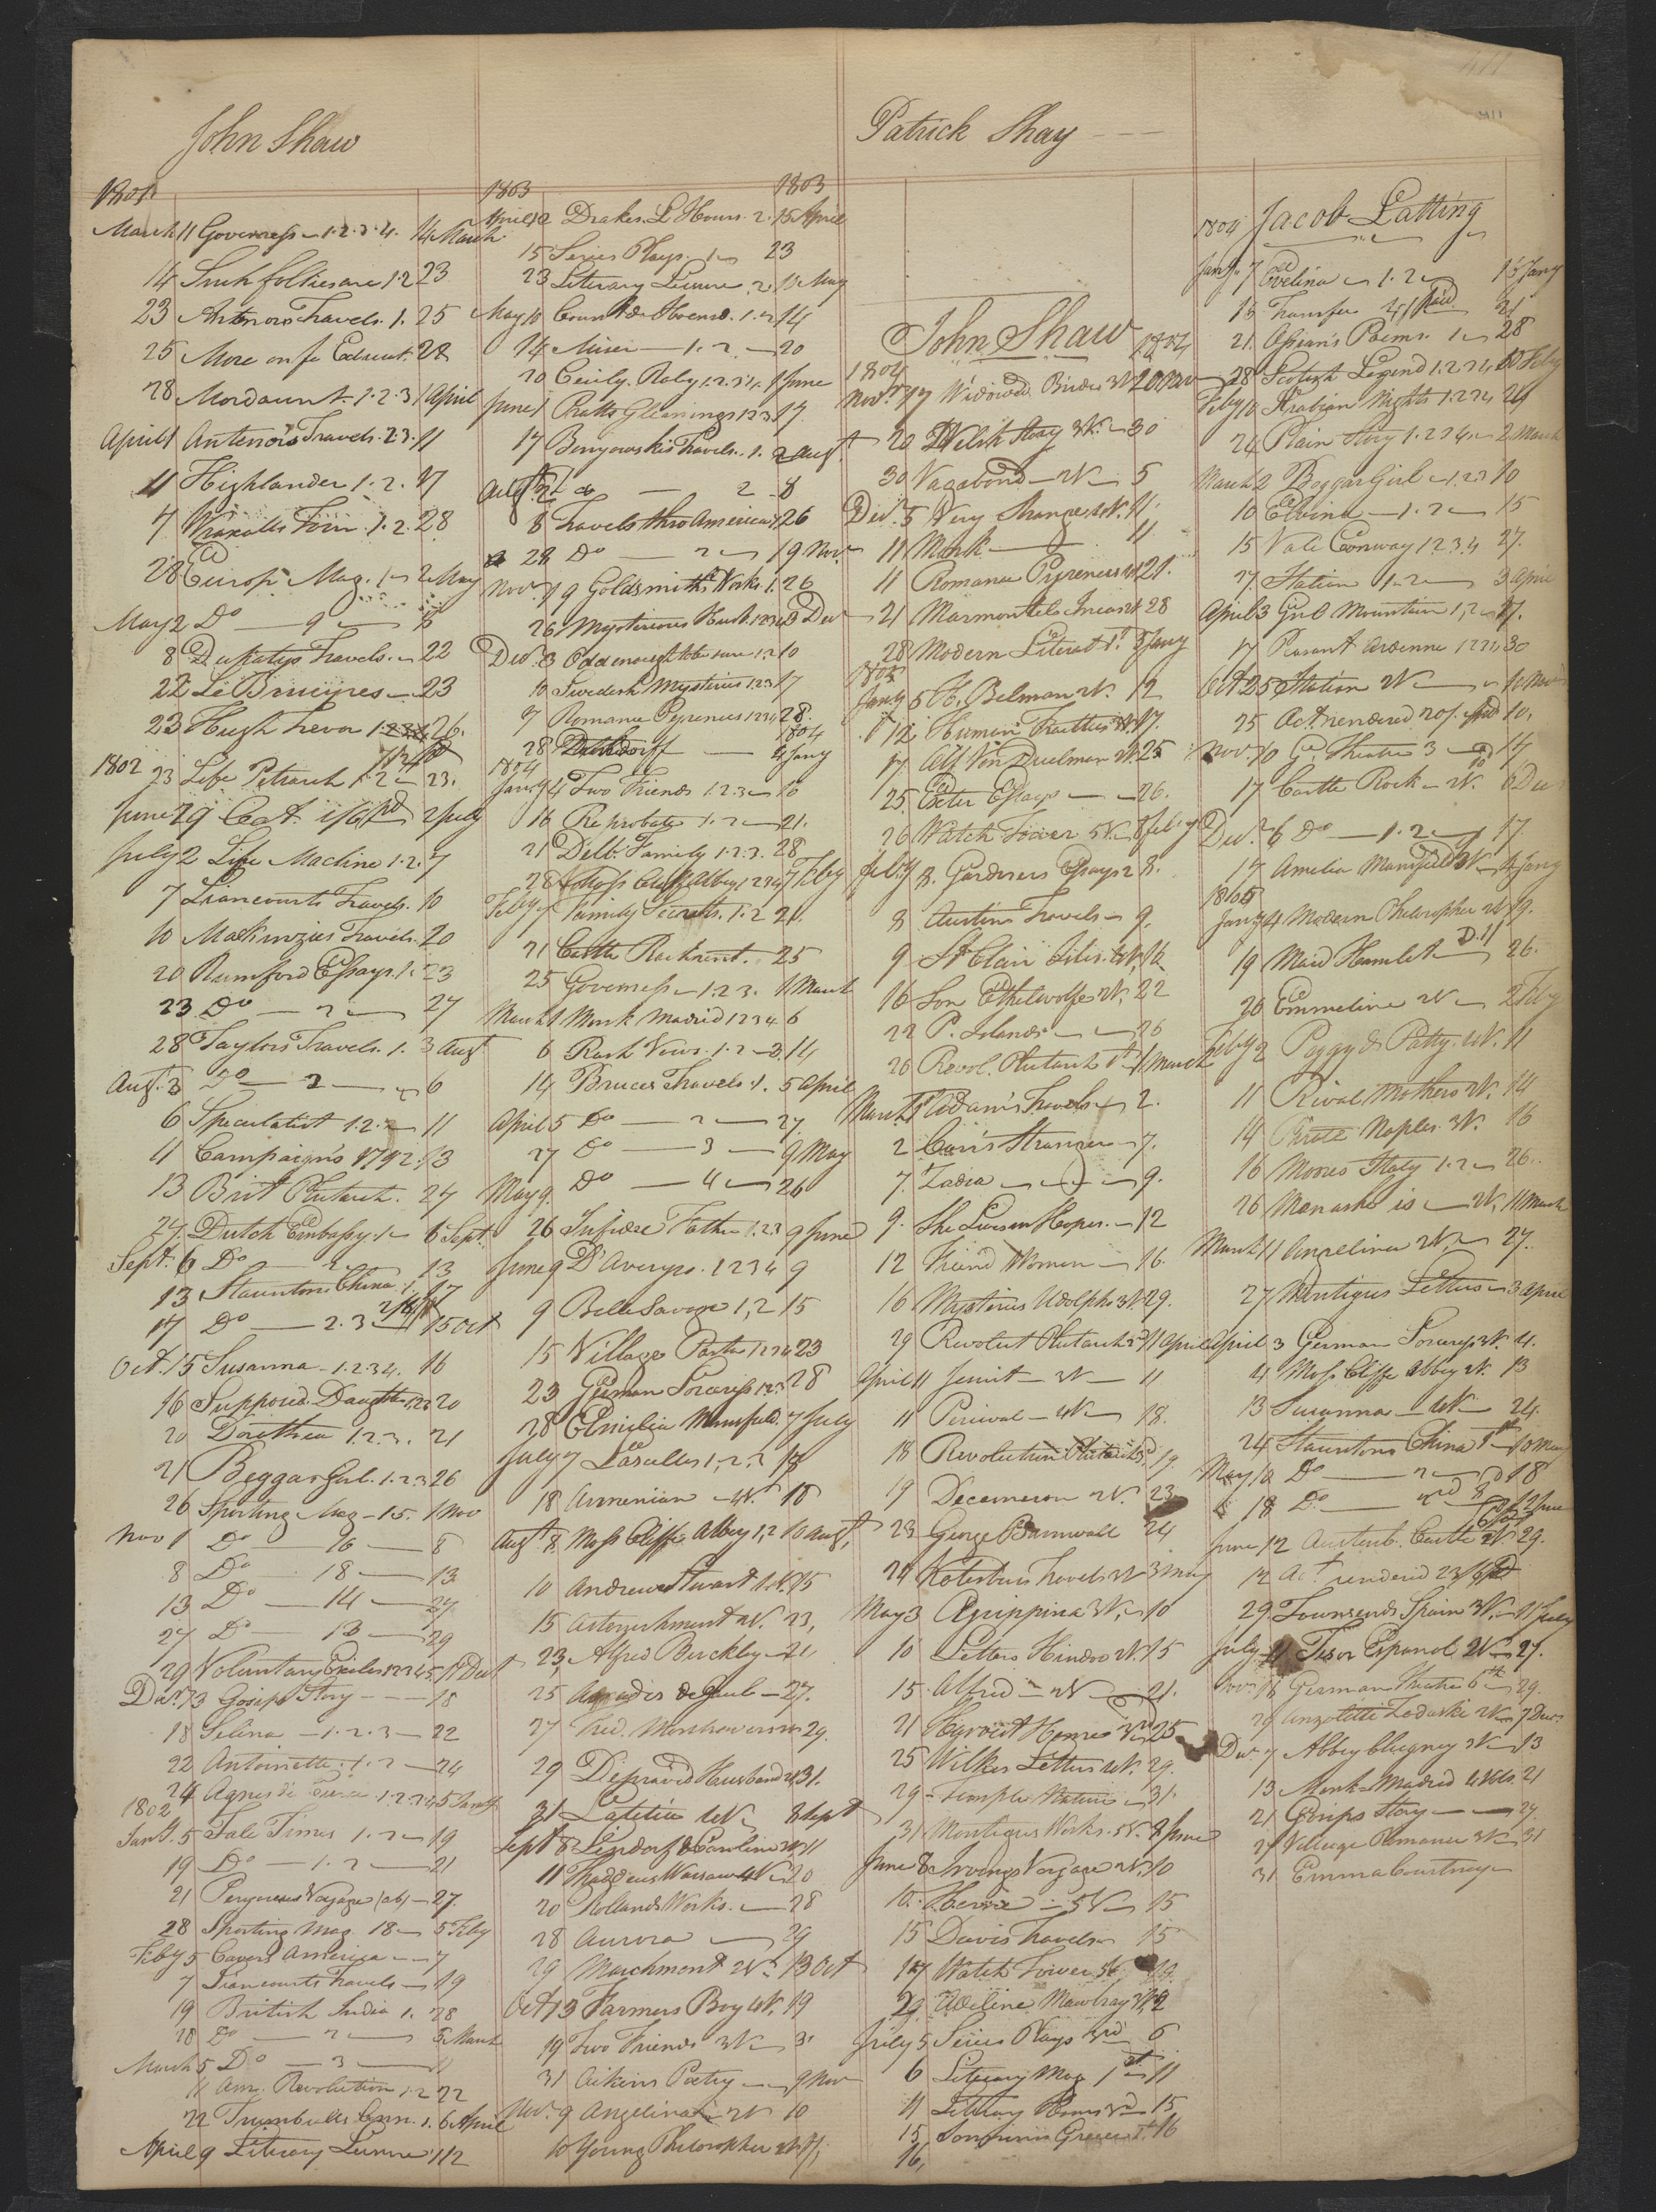 John Shaw
1801
March 11 Governess - 1.2.3.4. 14 March
14 Such follies are 1.2 23
23 Antenors Travels. 1. 25
25 More on fe Educat. 28
28 Mordaunt 1.2.3 1 April
April 1 Antenors Travels. 2.3. 11
11 Highlander 1.2. 17
7 Wraxalls Tour. 1.2. 28
28 Europn Mag. 1 2 May
May 2 Do 2 8
8 Dupatys Travels. 22
22 Le Brueyres 23
23 Hugh Trevor 1.2.3.4 26.
1802 23 Life Petrarch 1.2 23.
June 29 Cat. 1/6 Pd 2 July
July 2 Life Machine 1.2. 7
7 Liancourts Travels. 10
10 MacKinzies Travels. 20
20 Rumford Essays. 1. 23
23 Do 2 27
28 Taylors Travels. 1. 3 Augt
Augt. 3 Do 2 6
6 Speculatist 1.2. 11
11 Campaigns 1792. 13
13 Brit Plutarch. 27
27. Dutch Embassy. 1 6 Sept.
Sept. 6 Do 2. 13
13 Stauntons China. 1. 17
17 Do 2.3 15 Oct
Oct. 15 Susanna - 1.2.3.4. 16
16 Supposed Daughter 1.2.3 20
20 Dorithea 1.2.3. 21
21 Beggar Girl. 1.2.3 26
26 Sporting Mag - 15. 1 Nov
Nov 1 Do 16 8
8 Do 18 13
13 Do 14 27
27 Do 13 29
29 Voluntary Exiles 1.2.3.4.5. 13 Dec
Decr. 13 Gosips Story 18
18 Selina - 1.2.3 22
22 Antoinette. 1.2 24
24 Agnes de 1.2.3.4 5 Jany
1802
Jany. 5 Tale Times 1.2 19
19 Do 1.2 21
21 Voyage (ab) 27.
28 Sporting Mag 18 5 Feby
Feby 5 Carvers America 7
7 Liancourts Travels 19
19 British India 1. 28
28 Do 2 5 March
March 5 Do 3 11
11 Am. Revolution 1.2 22
22 Trumbulls Conn. 1. 6 April
April 9 Literary Leisure 1 12
1803 1803
April 12 Drakes. L Hours. 2. 15 April
15 Series Plays. 1 23
23 Literary Leisure. 2 10 May
May 10 Count de Hoensd. 1.2 14
14 Miser - 1.2. 20
20 Cecily. Raby 1.2.3.4. 1 June
June 1 Pratts Gleanings 1.2.3 17.
17 Benyowskis Travels. 1. 2 Augt
Augt 2 do 2 8
8 Travels thro America 1 26
28 Do 2 19 Nov
Nov. 19 Goldsmiths Works. 1. 26
26 Mysterious Husb. 1.2.3.4 3 Dec
Decr. 3 Odd enough to be sure 1.2 10
10 Swedish Mysteries 1.2.3 17
7 Romance Pyrenees 1.2.3.4 28.
1804
28 Dahldorff 4 Jany
1804
Jany 4 Two Friends 1.2.3 16
16 Reprobate 1.2 21.
21 Delb. Family 1.2.3. 28
28 Moss Cliff Abbey 1.2.3.4 7 Feby
Feby 7 Family Secrets. 1.2 21.
21 Castle Rackrent. 25
25 Governess 1.2.3. 1 March
March 1 Monk Madrid 1 2 3 4 6
6 Rash Vows. 1.2.3 14
14 Bruces Travels. 1. 5 April
April 5 Do 2 27
27 do 3 9 May
May 9 Do 4 26
26 Father 1.2.3 9 June
June 9 D'Averyro. 1 2 3 4 9
9 Belle Savage 1,2 15
15 Village Pastor 1.2.3.4 23
23 German Sorceress 1.2.3 28
28 Emelia Mansfield. 7 July
July 7 Lascelles 1,2,3 18
18 Armenian 4V. 18
Augt. 8, Moss Cliffe Abbey 1,2 10 augt,
10 Andrew Stuart 1.4V. 15
15 Astonishment 2V. 23,
23, Alfred Berkley 24
25 Amadis de Gaul 27.
27 Fred. 29.
29 Depraved Husband 2V 31.
31 Latitia 2V 8 Sept
Sept 8 Lindorf & Caroline 3V 11
11 Thaddeus Warsaw 4V 20
20 Rollands Works. 28
28 Aurora 29
29 Marchmont 2V. 13 Oct
Oct 13 Farmers Boy 4V, 19
19 Two Friends 3V 31
31 Aikins Poetry 9 Nov
Nov. 9 Angelina 2V 10
10 Young Philosopher 2V 17,
Patrick Shay
John Shaw 1804
1804
Novr. 17 Widowed Bride 3V 20 Nov
20 Welsh Story 3V. 30
30 Vagabond 2V 5
Decr. 5 Very Strange 2V. 11.
11 Monk 11
11 Romance Pyrenees 4V 21.
21 Marmontels Incas 28
28 Modern Literat. 1t. 5 Jany
1805
Jany 5 H. Belman 2V. 12
12 Human Frailties 3V. 17.
17 Alf Von Duelmen 2V. 25
25. Exeter Essays 26.
26 Watch Tower 5V 8 Feby
Feby 8. Gardners Essays 2 8.
8 Austins Travels 9,
9 St Clair Isles. 4V, 16
16 Son Ethelwolfe 2V. 22
22 P. Islands 26
26 Revol. Plutarch 1st 1 March
March 1st Adam's Travels 2.
2 Carr's Stranger 7.
7. Zadia 9.
9. The Lucern Hoper. 12
12 Friend Women 16.
16 Mysteries Udolpho 3V 29.
29 Revolut Plutarch 2d 11 April
April 11 Jesuit 3V 11
11 Percival 4V 18.
18 Revolution Plutarch 3d 19
19 Decameron 2V. 23
23 George Barnwall 24
24 Kotezbues Travels 2V 3 May
May 3 Agrippina 3V, 10
10 Letters Hindoo 2V. 15
15. Alfred 2V 21.
21 Harriot Homes 3V 25
25 Wilkes Letters 4V. 29.
29 Temple Nature 31.
31 Montigues Works. 5V. 8 June
June 8 Irvings Voyage 2V. 10
10. Heroine 5V 15
15 Davis Travels 15
17 Watch Tower 5V 29.
29. Adeline Mowbray 3V. 2
July 5 Series Plays 3rd 6
6 Literary Mag 1st 11
11 Literary Hours 3d 15
15, Sonninis Greece 1st. 16
16,
1804 Jacob Latting
Jany 7 Evelina 1.2 15 Jany
15 Transfer 4/ Paid 21
21. Ossian's Poems. 1 28
28 Scotish Legend 1.2.3.4 10 Feby
Feby 10 Arabian Nights 1.2.3.4 24
24 Plain Story 1.2.3.4. 2 March
March 2 Beggar Girl 1.2.3 10
10 Elvina 1.2 15
15 Vale Conway 1.2.3.4 27.
27. Station 1.2 3 April
April 3 Girl Mountain 1,2 17.
17 Peasant Ardenne 1.2.3 30
Oct 25 Station 2V 10 Nov
25 Act. rendered 20/. Pd 10,
Nov. 10 Gn. Theatre 3 17
17 Castle Rock 2V. 6 Dec
Decr. 6 Do 1.2 17.
17 Amelia Mansfield 3V 4 Jany
1805
Jany 4 Modern Philosopher 2V 19.
19 Maid Hamlet D.11 26.
26 Emmeline 2V 2 Feby
Feby 2 Peggy & Patty. 4V. 11
11 Rival Mothers 2V. 14
14 Pirate Naples. 3V. 16
16 Moores Italy 1.2 26.
26 Monarsho is 2V, 11 March
March 11 Angelina 2V. 27.
27 Montigues Letters 3 April
April 3 German Sorceress 3V. 4.
4 Moss Cliffe Abbey 2V. 13
13 Susanna 4V 24.
24 Stauntons China 1st 10 May
May 10 Do 2 18
18 Do 3rd 12 June
June 12 Austenb. Castle 2V. 29.
12 Act rendered 23/6 Pd
29. Townsends Spain 3V. 11 July
July 11 Tesor Espanol 2V 27.
Nov. 16 German Theatre 6th 29.
29 Anzoletta Zadoski 2V 7 Decr.
Decr 7 Abbey Clugney 3V 13
13 Monk Madrid 4 Vols. 21
21 Gosips Story 27.
27 Village Romance 3V 31
31 Emma Courtney